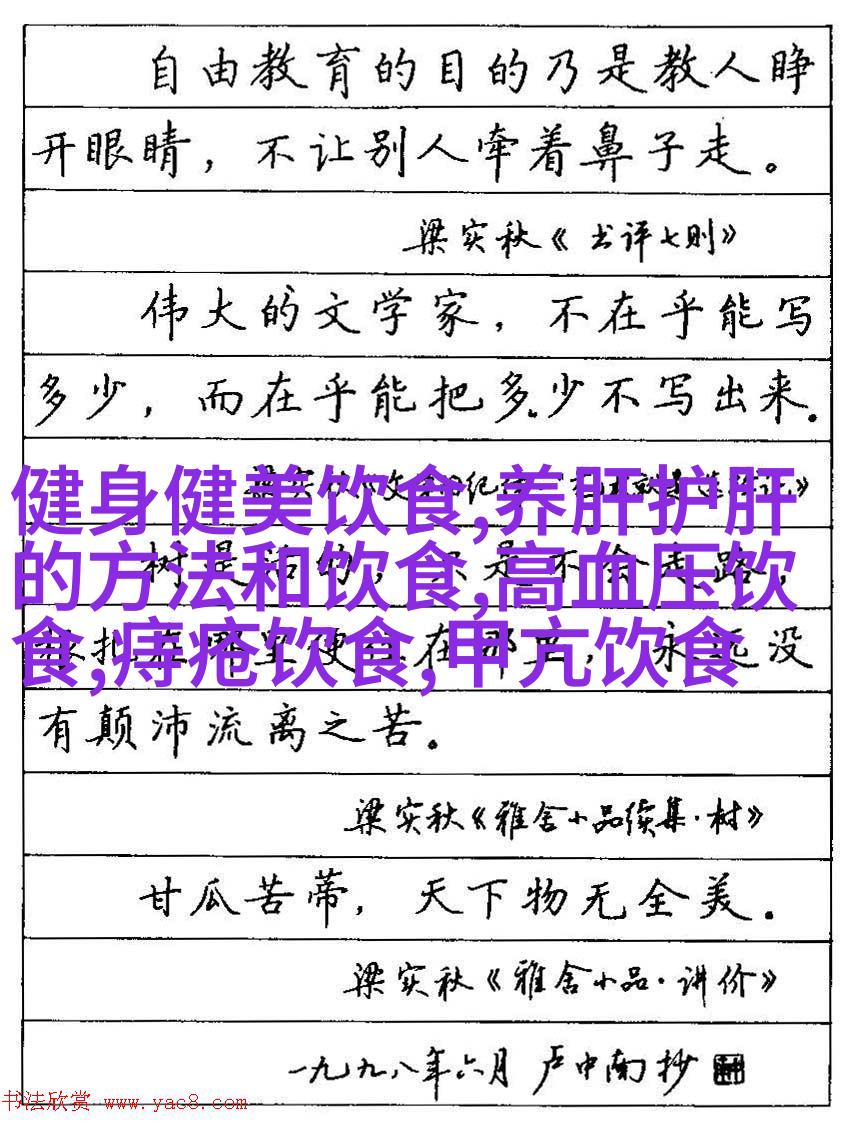 自由教育的目的乃是教人睁
开眼睛，不让别人牵着鼻子走。
梁实秋《书评七则》
伟大的文学家，不在乎能写
多少，而在乎能把多少不写出来。
健身健美饮食,养肝护肝
的方法和饮食,高血压饮
食,痔疮饮食,甲亢饮食
梁实秋《
树是活的，只是不会走路，
在那里，永远没
有颠沛流离之苦。
梁实秋《雅舍小品续集·树》
甘瓜苦蒂，天下物无全美。
梁实秋《雅舍小品·讲价》
一九九八年六月 卢中南抄
书法欣赏 www.yac8.com